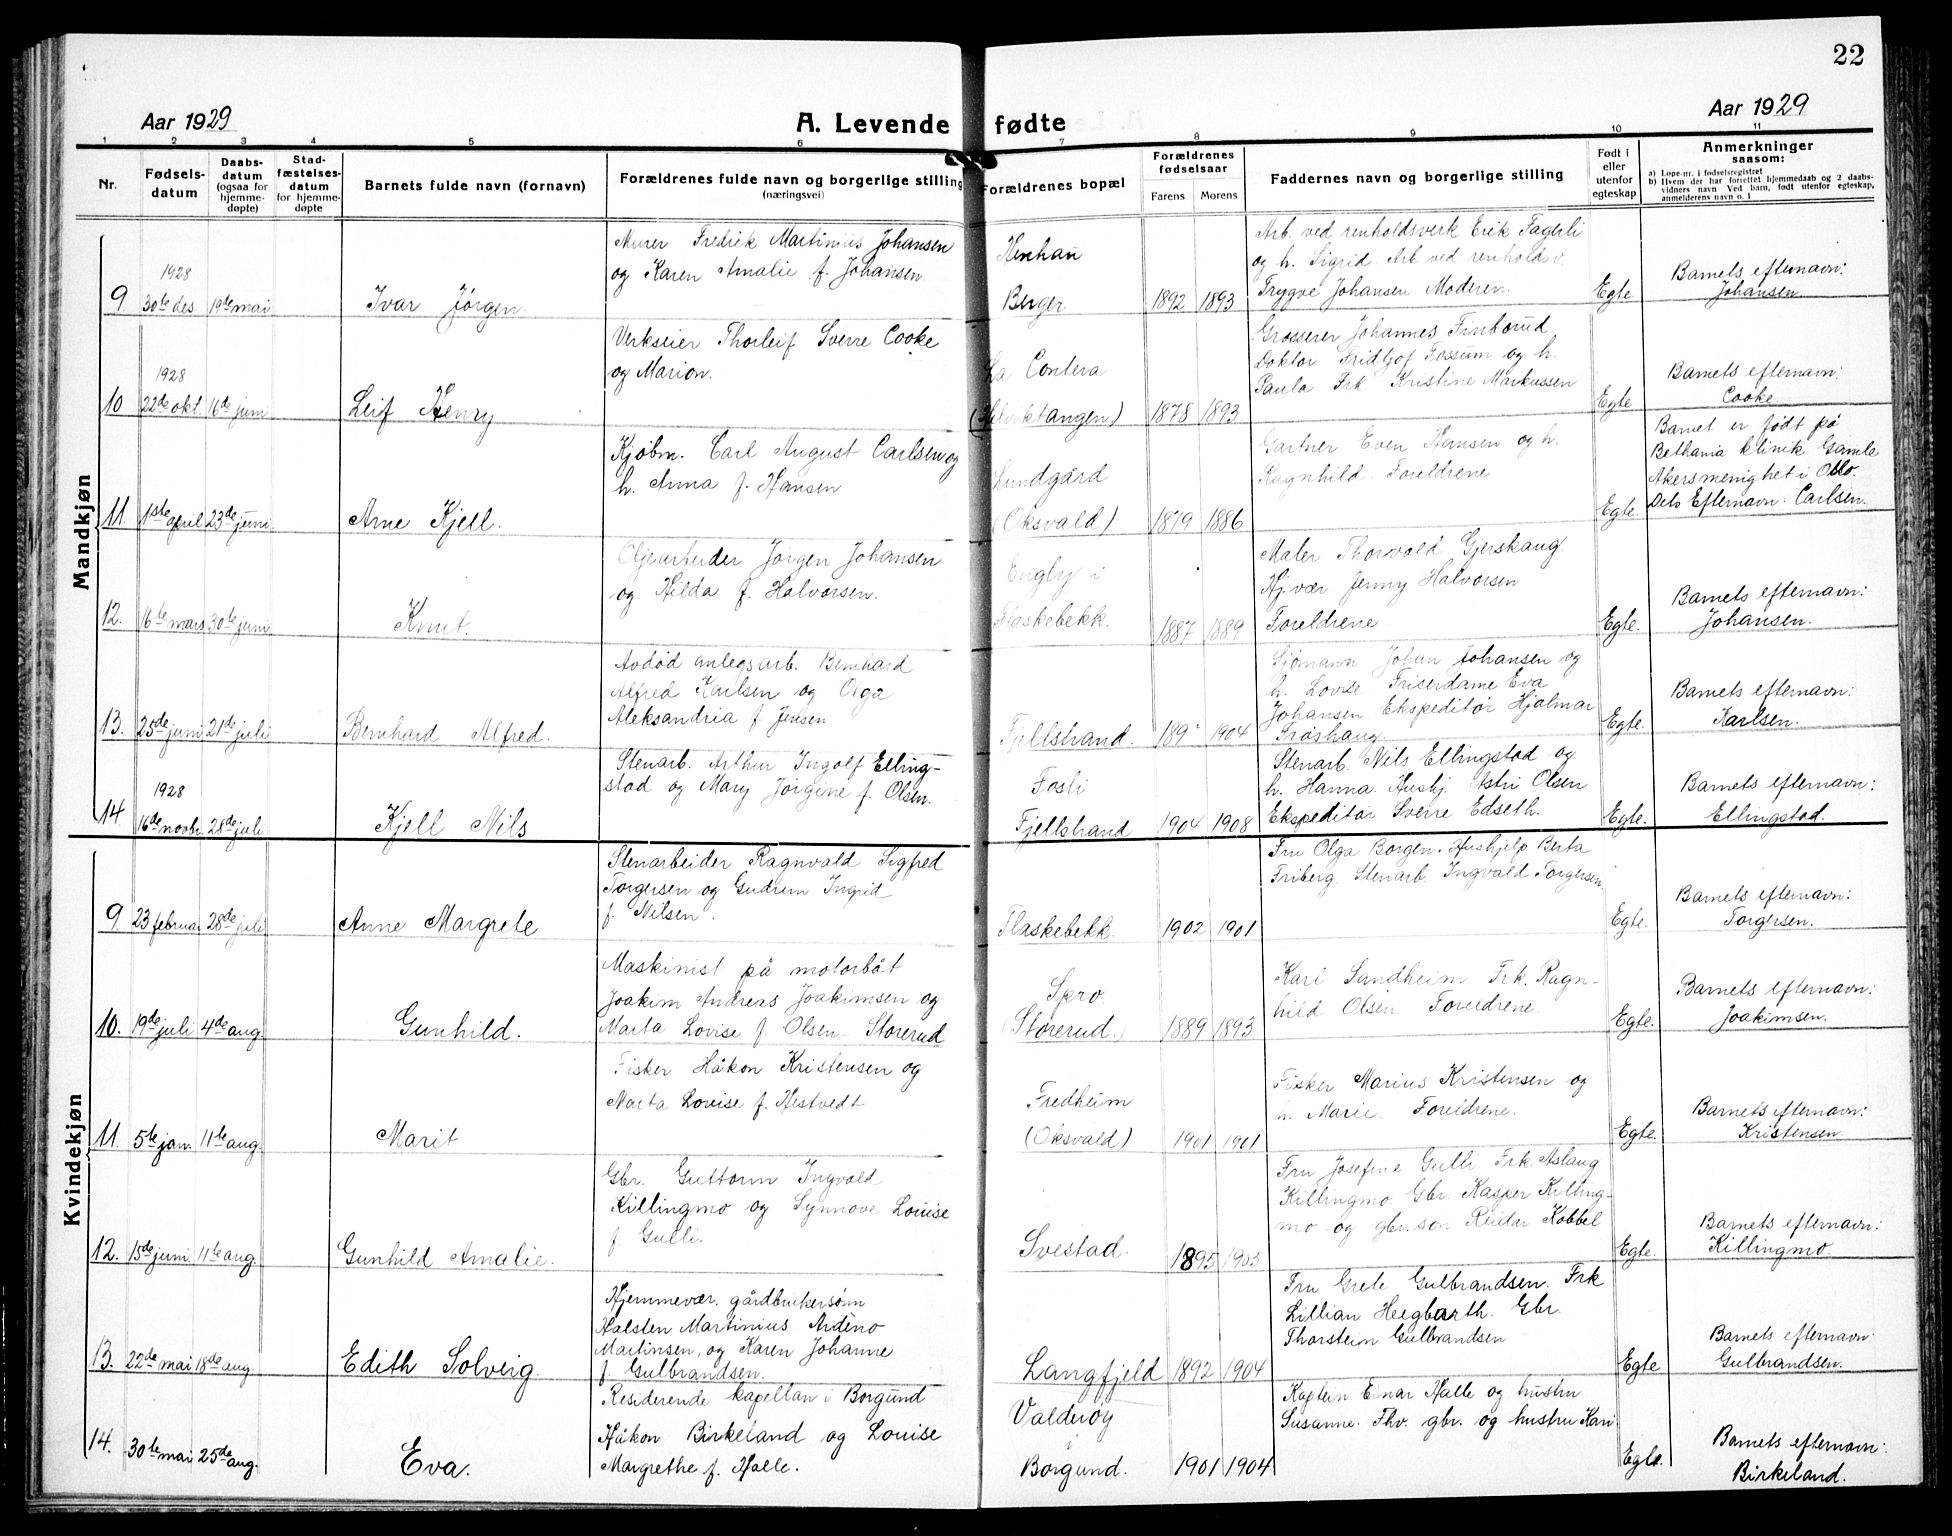 22
Aar 1929
A. Levende fødte
Aar 1929
1 2 3 4 5 6 7 8 9 10 11
Nr.
Fødselsdatum
Daabsdatum (ogsaa for hjemmedøpte)
Stadfæstelsesdatum for hjemmedøpte
Barnets fulde navn (fornavn)
Forældrenes fulde navn og borgerlige stilling (næringsvei)
Forældrenes bopæl
Forældrenes fødselsaar
Farens Morens
Faddernes navn og borgerlige stilling
Født i eller utenfor egteskap
Anmerkninger saasom:
a) Løpe-nr. i fødselsregistret
b) Hvem der har forsettet hjemmedaab og 2 daabsvidners navn Ved barn, født utenfor egteskap, anmelderens navn o. l
Mandkjøn
9
1928
30te des.
19de mai
Ivar Jörgen.
Murer Fredrik Martinius Johansen
og Karen Amalie f. Johansen.
Berger
1892 1893
Arb. ved renholdsverk Erik Fagerli
og h. Sigrid. Arb. ved renholdsv.
Trygve Johansen. Moderen.
Egte
Barnets efternavn:
Johansen.
10
1928
22de okt.
16de juni
Leif Henry
Verkseier Thorleif Sverre Cooke
og Marion.
La Contera
1878 1893
Grosserer Johannes Finborud
Doktor Fridtjof Fossum og h.
Paula Frk Kristine Markussen
Egte
Barnets efternavn:
Cooke
11.
1ste april
23de juni
Arne Kjell.
Kjøbm. Carl August Carlsen og
h. Anna f. Hansen
Lundgård
(Oksvald)
1879 1886
Gartner Even Hansen og h.
Ragnhild. Foreldrene
Egte.
Barnet er født på
Bethania klinik Gamle
Akersmenighet i Oslo.
Dets Efternavn: Carlsen.
12.
16te mars
30te juni
Knut.
Oljearbeider Jörgen Johansen
og Hilda f. Halvorsen.
Engly i
Flaskebekk.
1887 1889
Maler Thorvald Gjerskaug
Hj.vær Jenny Halvorsen
Foreldrene.
Egte.
Barnets efternavn:
Johansen.
13.
25de juni
21de juli
Bernhard Alfred.
Avdød anlegsarb. Bernhard
Alfred Karlsen og Olga
Aleksandria f Jensen
Fjellstrand.
1904
Sjømann Johan Johansen og
h. Lovise. Friserdame Eva
Johansen Ekspeditör Hjalmar
Egte.
Barnets efternavn:
Karlsen.
14
1928
16de novbr.
28de juli
Kjell Nils
Stenarb. Arthur Ingolf Elling-
stad og Mary Jörgine f. Olsen.
Fosli
Fjellstrand
1904 1908
Stenarb. Nils Ellingstad og
h. Hanna. Hushj. Astri Olsen
Ekspeditör Sverre Edseth.
Egte.
Barnets efternavn:
Ellingstad.
Kvindekjøn
9
23 februar
28de juli
Anne Margrete
Stenarbeider Ragnvald Sigfred
Torgersen og Gudrun Ingrid
f. Nilsen.
Flaskebekk.
1902 1901
Fru Olga Borgen. Hushjelp Berta
Friberg Stenarb. Ingvald Torgersen.
Egte.
Barnets efternavn:
Torgersen.
10.
19de juli
4de aug.
Gunhild.
Maskinist på motorbåt
Joakim Andreas Joakimsen og
Marta Lovise f. Olsen - Storerud
Spro
(Storerud.)
1889 1893
Karl Sandheim Frk. Ragn-
hild Olsen Foreldrene
Egte.
Barnets efternavn:
Joakimsen.
11
5te jan.
11te aug.
Marit
Fisker Håkon Kristensen og
Marta Lovise f. Hestvedt
Fredheim
(Oksvald)
1901 1901
Fisker Marius Kristensen og
h. Marie. Foreldrene.
Egte.
Barnets efternavn:
Kristensen
12.
15de juni
11te aug.
Gunhild Amalie.
Gbr. Guttorm Ingvald
Killingmo og Synnöve Louise
f Gulli.
Svestad.
1895 1905
Fru Josefine Gulli Frk. Aslaug
Killingmo Gbr. Kasper Killing-
mo og gbr.søn Reidar Kobbel
Egte.
Barnets efternavn:
Killingmo.
13.
22de mai
18de aug.
Edith Solveig.
Hjemmevær. gårdbrukersønn
Halsten Martinius Ardeno
Martinsen, og Karen Johanne
f Gulbrandsen.
Langfjeld
1892 1904
Fru Grete Gulbrandsen. Frk
Lillian Heegbarth. Gbr.
Thorstein Gulbrandsen
Egte.
Barnets efternavn:
Gulbrandsen.
14.
30te mai
25de aug.
Eva.
Residerende kapellan i Borgund
Håkon Birkeland og Louise
Margrethe f. Halle.
Valderöy
i
Borgund.
1901 1904
Kaptein Einar Halle og hustru
Susanne. Fhv. gbr. og hustru Kari
Egte.
Barnets efternavn:
Birkeland.